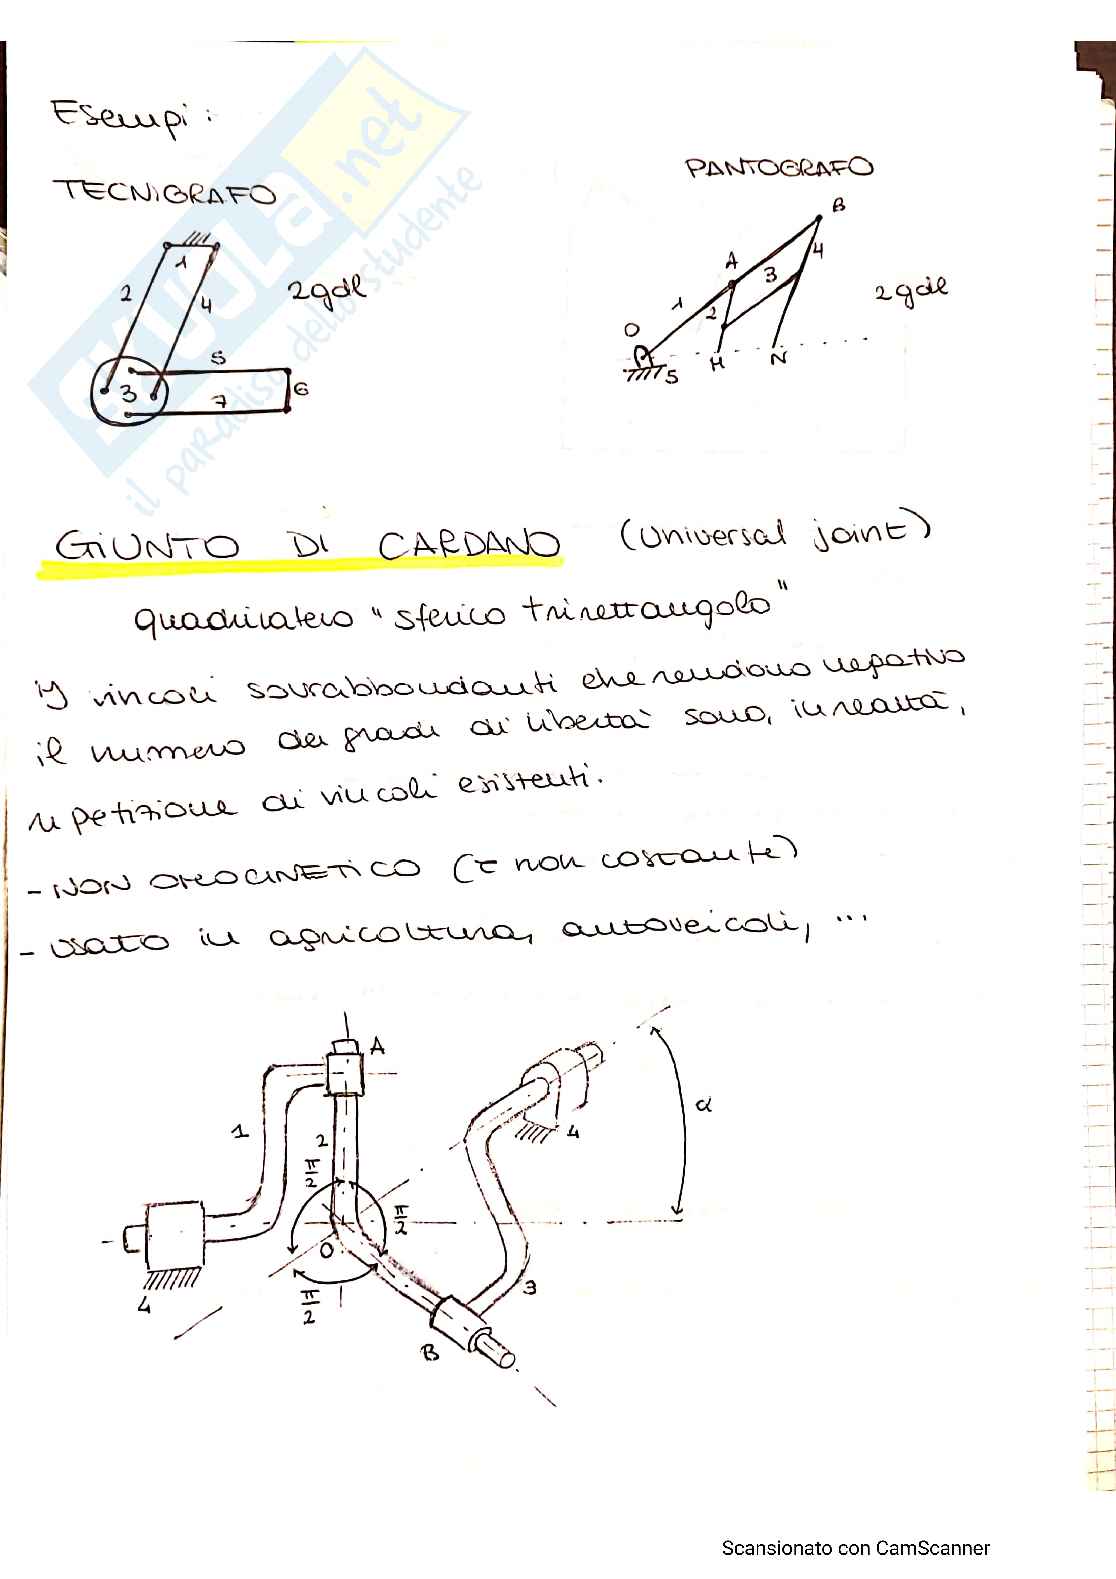 Esempi:
TECNIGRAFO
PANTOGRAFO
1
2
4
3
5
6
7
2gdl
B
A
4
3
1
2
O
5
H
N
2gdl
SKUOLA.net
il paradiso dello studente
GIUNTO DI CARDANO (Universal joint)
quadrilatero "sferico trirettangolo"
I vincoli sovrabbondanti che rendono negativo
il numero dei gradi di libertà sono, in realtà,
ripetizione di vincoli esistenti.
- NON OMOCINETICO (τ non costante)
- usato in agricoltura, autoveicoli, ...
A
1
2
π/2
π/2
O
π/2
4
B
3
4
α
Scansionato con CamScanner